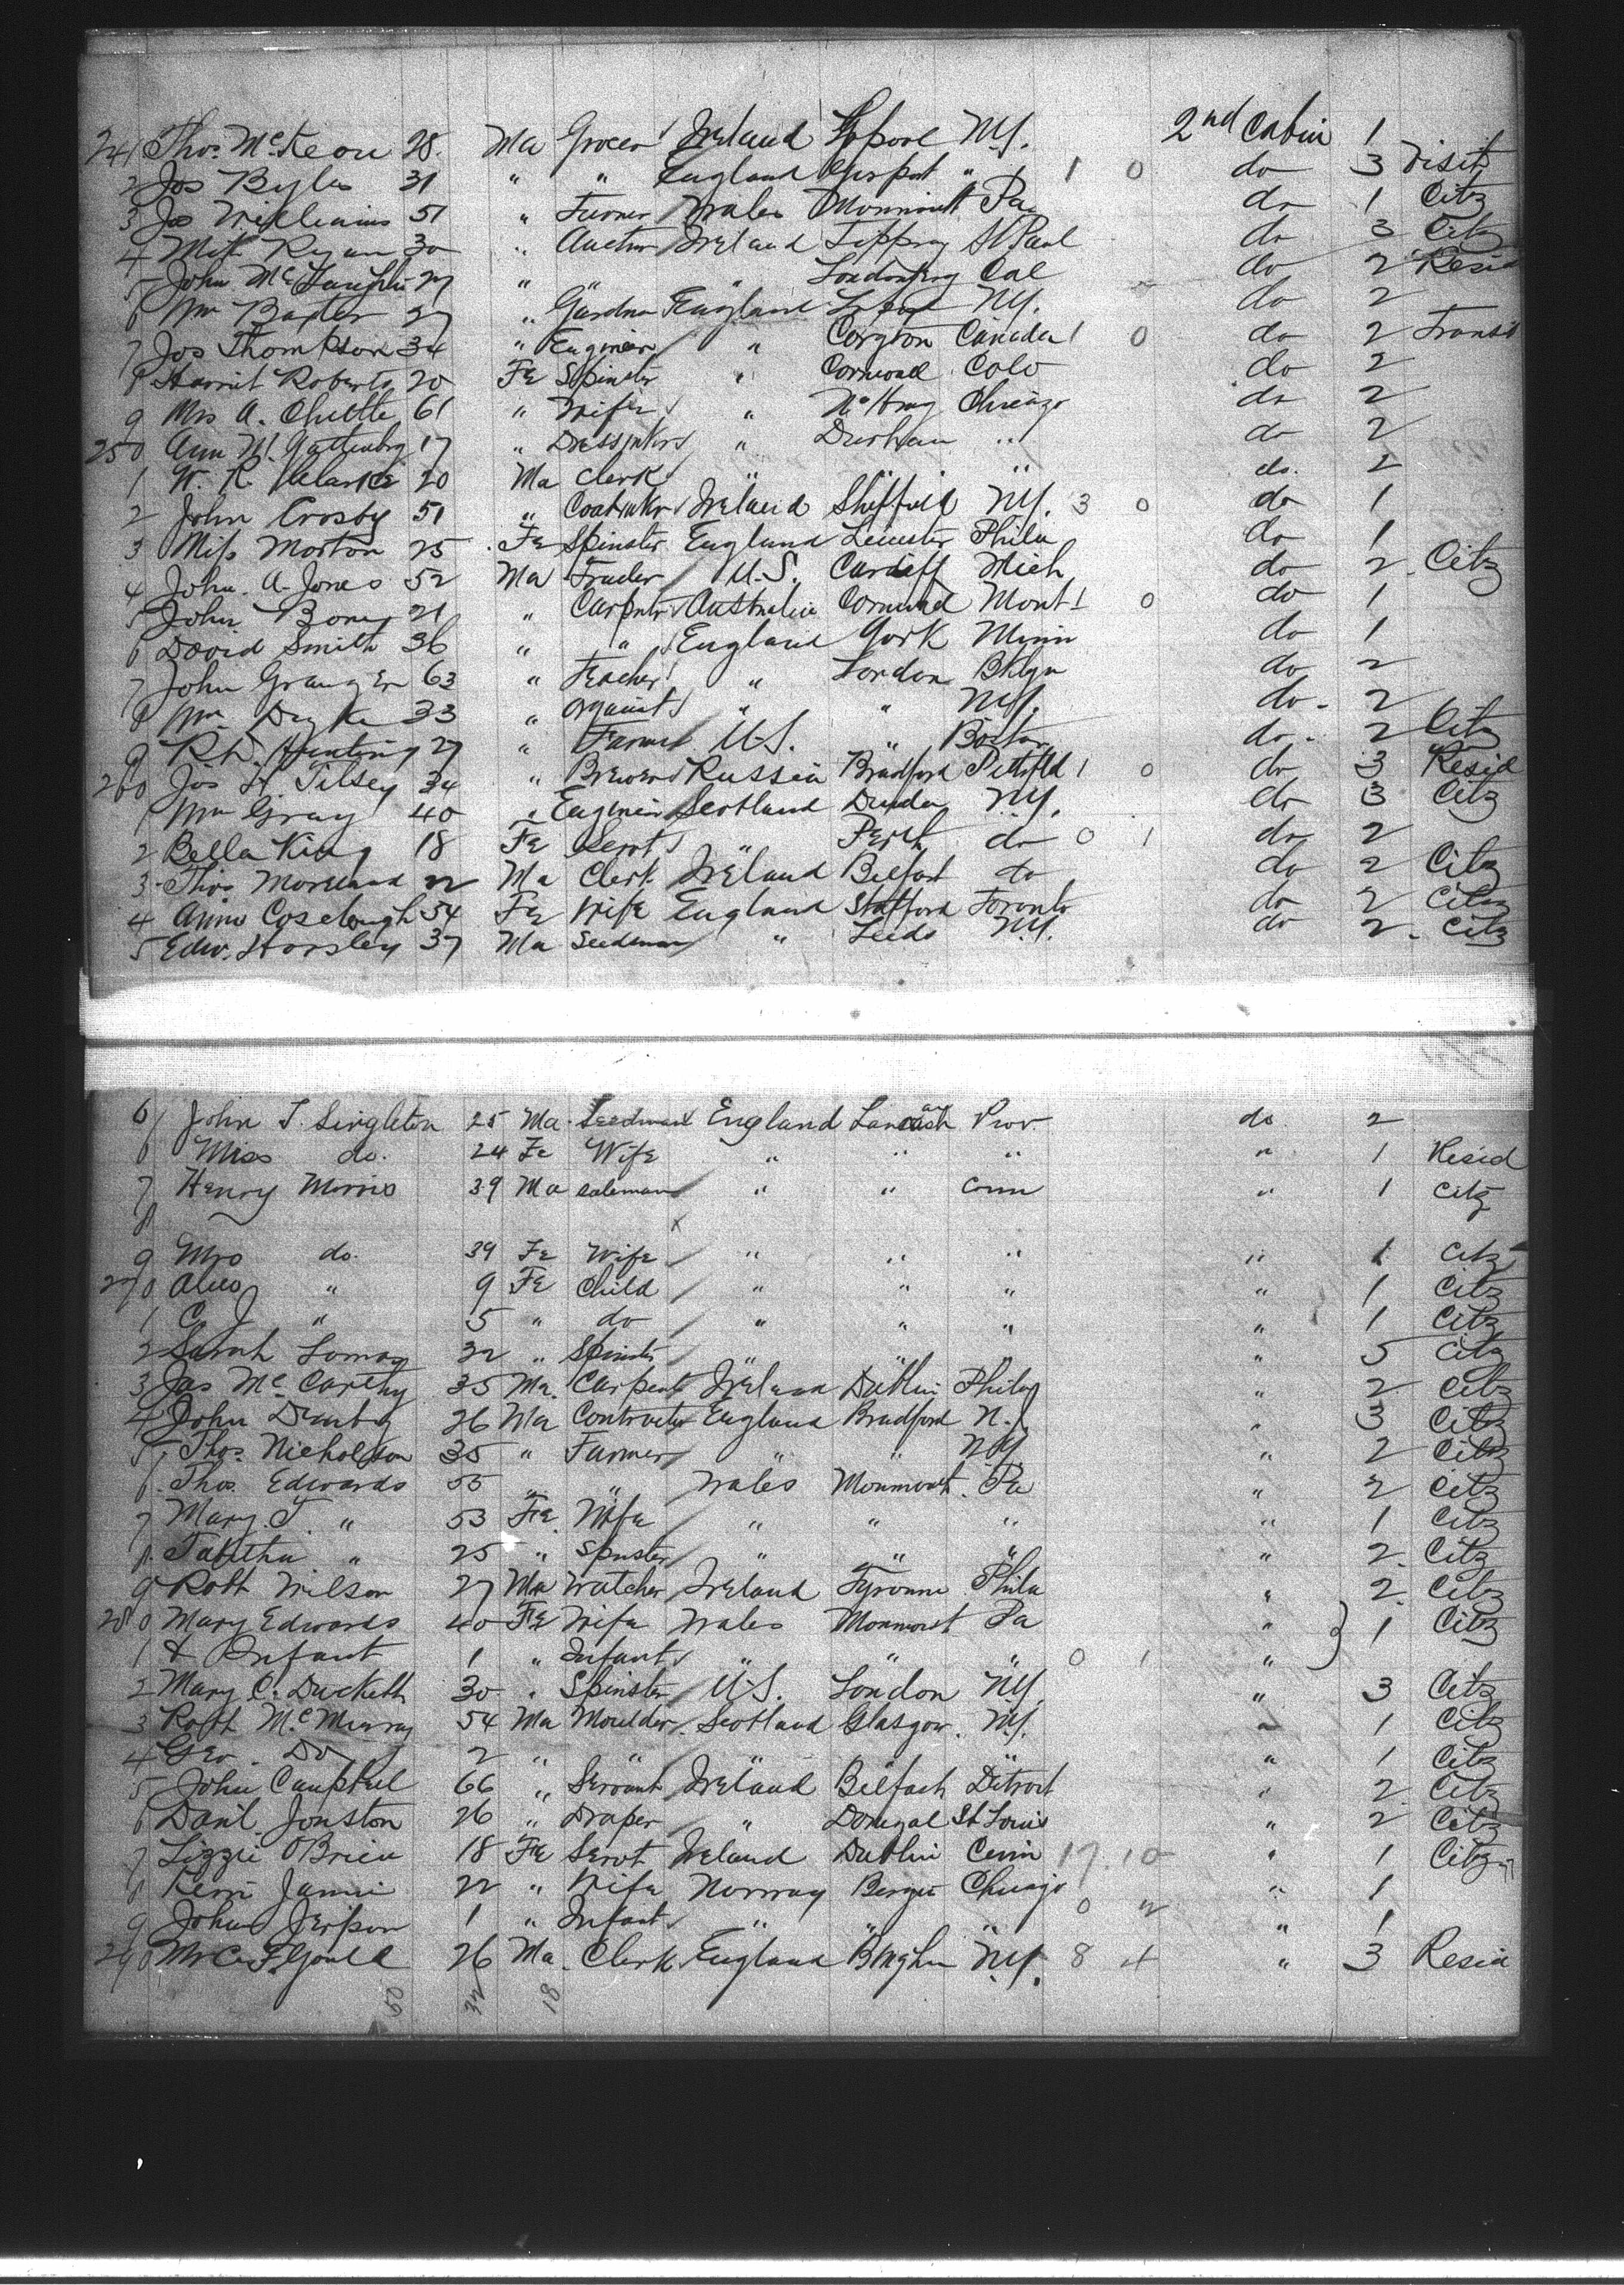 241 Thos. McKeon 28. Ma Grocer Ireland Lpool N.Y. 2nd Cabin 1
2 Jos Byles 31 " " England " 1 0 do 3 Visit
3 Jos Williams 51 " Wales Pa do 1 Citz
4 Mit Ryan 30 " Ireland St Paul do 3 Citz
5 John McLaughlin 27 " " " Cal do 2 Resid
6 Wm Baxter 27 " Gardnr England N.Y. do 2
7 Jos Thompson 34 " Engineer " Canada 1 0 do 2 Transit
8 Harriet Roberts 20 Fe Spinster " Cornwal Colo do 2
9 Mrs A. 61 " Wife " Chicago do 2
250 Ann M. 17 " " Durham " do 2
1 W. R. Clarke 20 Ma Clerk " " " do. 2
2 John Crosby 51 " Ireland Sheffield N.Y. 3 0 do 1
3 Miss Morton 25 Fe Spinster England Leicester Phila do 1
4 John. A. Jones 52 Ma Trader U.S. Cardiff Mich do 2 Citz
5 John 21 " Australia Mont 1 0 do 1
6 David Smith 36 " " England York Minn do 1
7 John Granger 63 " Teacher " London Bklyn do 2
8 Wm. Dyke 33 " " " N.Y. do - 2
9 R. D. Hunting 27 " Farmer U.S. " Boston do - 2 Citz
260 Jos H. Tilsey 34 " Brewer Russia Bradford 1 0 do 3 Resid
1 Wm Gray 40 " Engineer Scotland N.Y. do 3 Citz
2 Bella King 18 Fe Servt " Perth do 0 1 do 2
3 Thos Moreland 22 Ma Clerk Ireland Belfast do do 2 Citz
4 54 Fe Wife England Stafford Toronto do 2 Citz
5 Edw. Horsley 37 Ma Seedsman " Leeds N.Y. do 2 - Citz
6 John T. Singleton 25 Ma. England Prov. do 2
6 Miss do. 24 Fe Wife " " " " 1 Resid
7 Henry Morris 39 Ma Salesman " " Conn " 1 Citz
8
9 Mrs do. 39 Fe Wife " " " " 1 Citz
270 " 9 Fe Child " " " " 1 Citz
1 C J " 5 " do " " " " 1 Citz
2 Sarah Lomas 32 " Spinster " " " " 5 Citz
3 Jas McCarthy 35 Ma. Carpentr Ireland Dublin Phila " 2 Citz
4 John Denby 26 Ma Contractor England Bradford N.J " 3 Citz
5 Thos. Nicholson 35 " Farmer " " N.Y " 2 Citz
6 Thos. Edwards 55 " " Wales Monmout Pa " 2 Citz
7 Mary T. " 53 Fe Wife " " " " 1 Citz
8 Tabitha " 25 " Spinster " " " " 2. Citz
9 Robt Wilson 27 Ma Watcher Ireland Tyrone Phila " 2. Citz
280 Mary Edwards 40 Fe Wife Wales Monmout Pa " 1 Citz
1 & Infant 1 " Infant " " " 0 1 "
2 Mary C. Duckett 30 " Spinster U.S. London N.Y. " 3 Citz
3 Robt McMurray 54 Ma Moulder Scotland Glasgow. N.Y. " 1 Citz
4 Geo. Do 2 " " " " " " 1 Citz
5 John Campbell 66 " Servant Ireland Belfast Detroit " 2 Citz
6 Danl Jonston 26 " Draper " Donegal St Louis " 2 Citz
7 Lizzie O'Brien 18 Fe Servt Ireland Dublin 17. 10 " 1 Citz
8 22 " Wife Norway Bergen Chicago " 1
9 John 1 " Infant " " " 0 2 " 1
290 Gould 26 Ma. Clerk England N.Y. 8 4 " 3 Resid
50 32 18